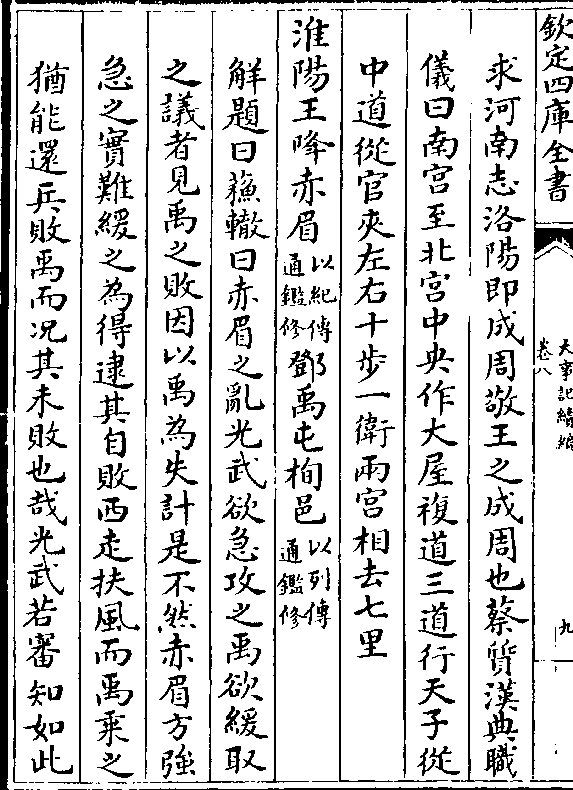 欽定四庫全書
大事記續編
卷八
九
求河南志洛陽即成周敬王之成周也蔡質漢典職
儀曰南宮至北宮中央作大屋複道三道行天子從
中道從官夾左右十步一衛兩宮相去七里
淮陽王降赤眉以紀傳通鑑修鄧禹屯栒邑以列傳通鑑修
解題曰蘓轍曰赤眉之亂光武欲急攻之禹欲緩取
之議者見禹之敗因以禹為失計是不然赤眉方強
急之實難緩之為得逮其自敗西走扶風而禹乘之
猶能還兵敗禹而况其未敗也哉光武若審知如此